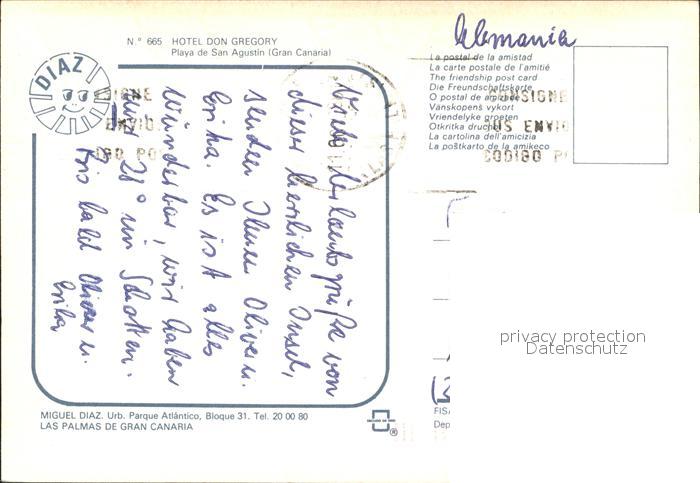 N.° 665 HOTEL DON GREGORY
Playa de San Agustín (Gran Canaria)
DIAZ
Viele Urlaubsgrüße von
dieser herrlichen Insel,
senden Ihnen Oliver u.
Erika. Es ist alles
wunderbar, wir haben
28° im Schatten.
Bis bald Oliver u.
Erika
MIGUEL DIAZ. Urb. Parque Atlántico, Bloque 31. Tel. 20 00 80
LAS PALMAS DE GRAN CANARIA
Alemania
La postal de la amistad
La carte postale de l'amitié
The friendship post card
Die Freundschaftskarte
O postal de
Vänskapens vykort
Vriendelyke groeten
Otkritka druchbi
La cartolina dell'amicizia
La poŝtkarto de la amikeco
CONSIGNE
ENVIO
CODIGO PO
privacy protection
Datenschutz
FISA
Dep